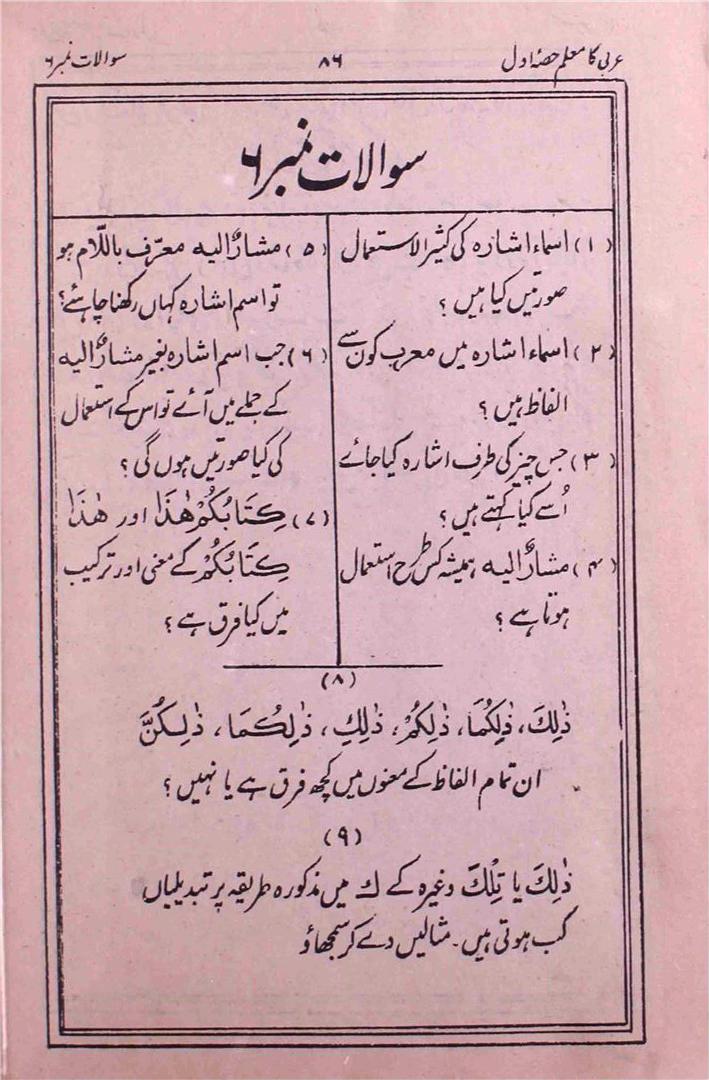 عربی کا معلم حصۂ اول
۸۶
سوالات نمبر ۶
سوالات نمبر ۶
(۱) اسماء اشارہ کی کثیر الاستعمال
صورتیں کیا ہیں ؟
(۲) اسماء اشارہ میں معرب کون سے
الفاظ ہیں ؟
(۳) جس چیز کی طرف اشارہ کیا جائے
اُسے کیا کہتے ہیں ؟
(۴) مشارٌ الیہ ہمیشہ کس طرح استعمال
ہوتا ہے ؟
(۵) مشارٌ الیہ معرّف باللّام ہو
تو اسم اشارہ کہاں رکھنا چاہئے ؟
(۶) جب اسم اشارہ بغیر مشارٌ الیہ
کے جملے میں آئے تو اس کے استعمال
کی کیا صورتیں ہوں گی ؟
(۷) كِتَابُكُمْ هٰذَا اور هٰذَا
كِتَابُكُمْ کے معنی اور ترکیب
میں کیا فرق ہے ؟
(۸)
ذٰلِكَ، ذٰلِكُمَا، ذٰلِكُمْ، ذٰلِكِ، ذٰلِكُمَا، ذٰلِكُنَّ
ان تمام الفاظ کے معنوں میں کچھ فرق ہے یا نہیں ؟
(۹)
ذٰلِكَ یا تِلْكَ وغیرہ کے ك میں مذکورہ طریقہ پر تبدیلیاں
کب ہوتی ہیں۔ مثالیں دے کر سمجھاؤ